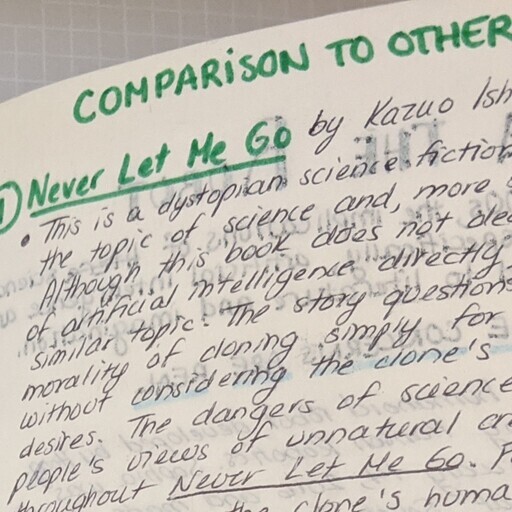 COMPARISON TO OTHER
1) Never Let Me Go by Kazuo Ish
• This is a dystopian science fiction
the topic of science and, more
Although this book does not
of artificial intelligence directly,
similar topic. The story questions
morality of cloning simply for
without considering the clone's
desires. The dangers of science
people's views of unnatural
throughout Never Let Me Go.
the clone's huma